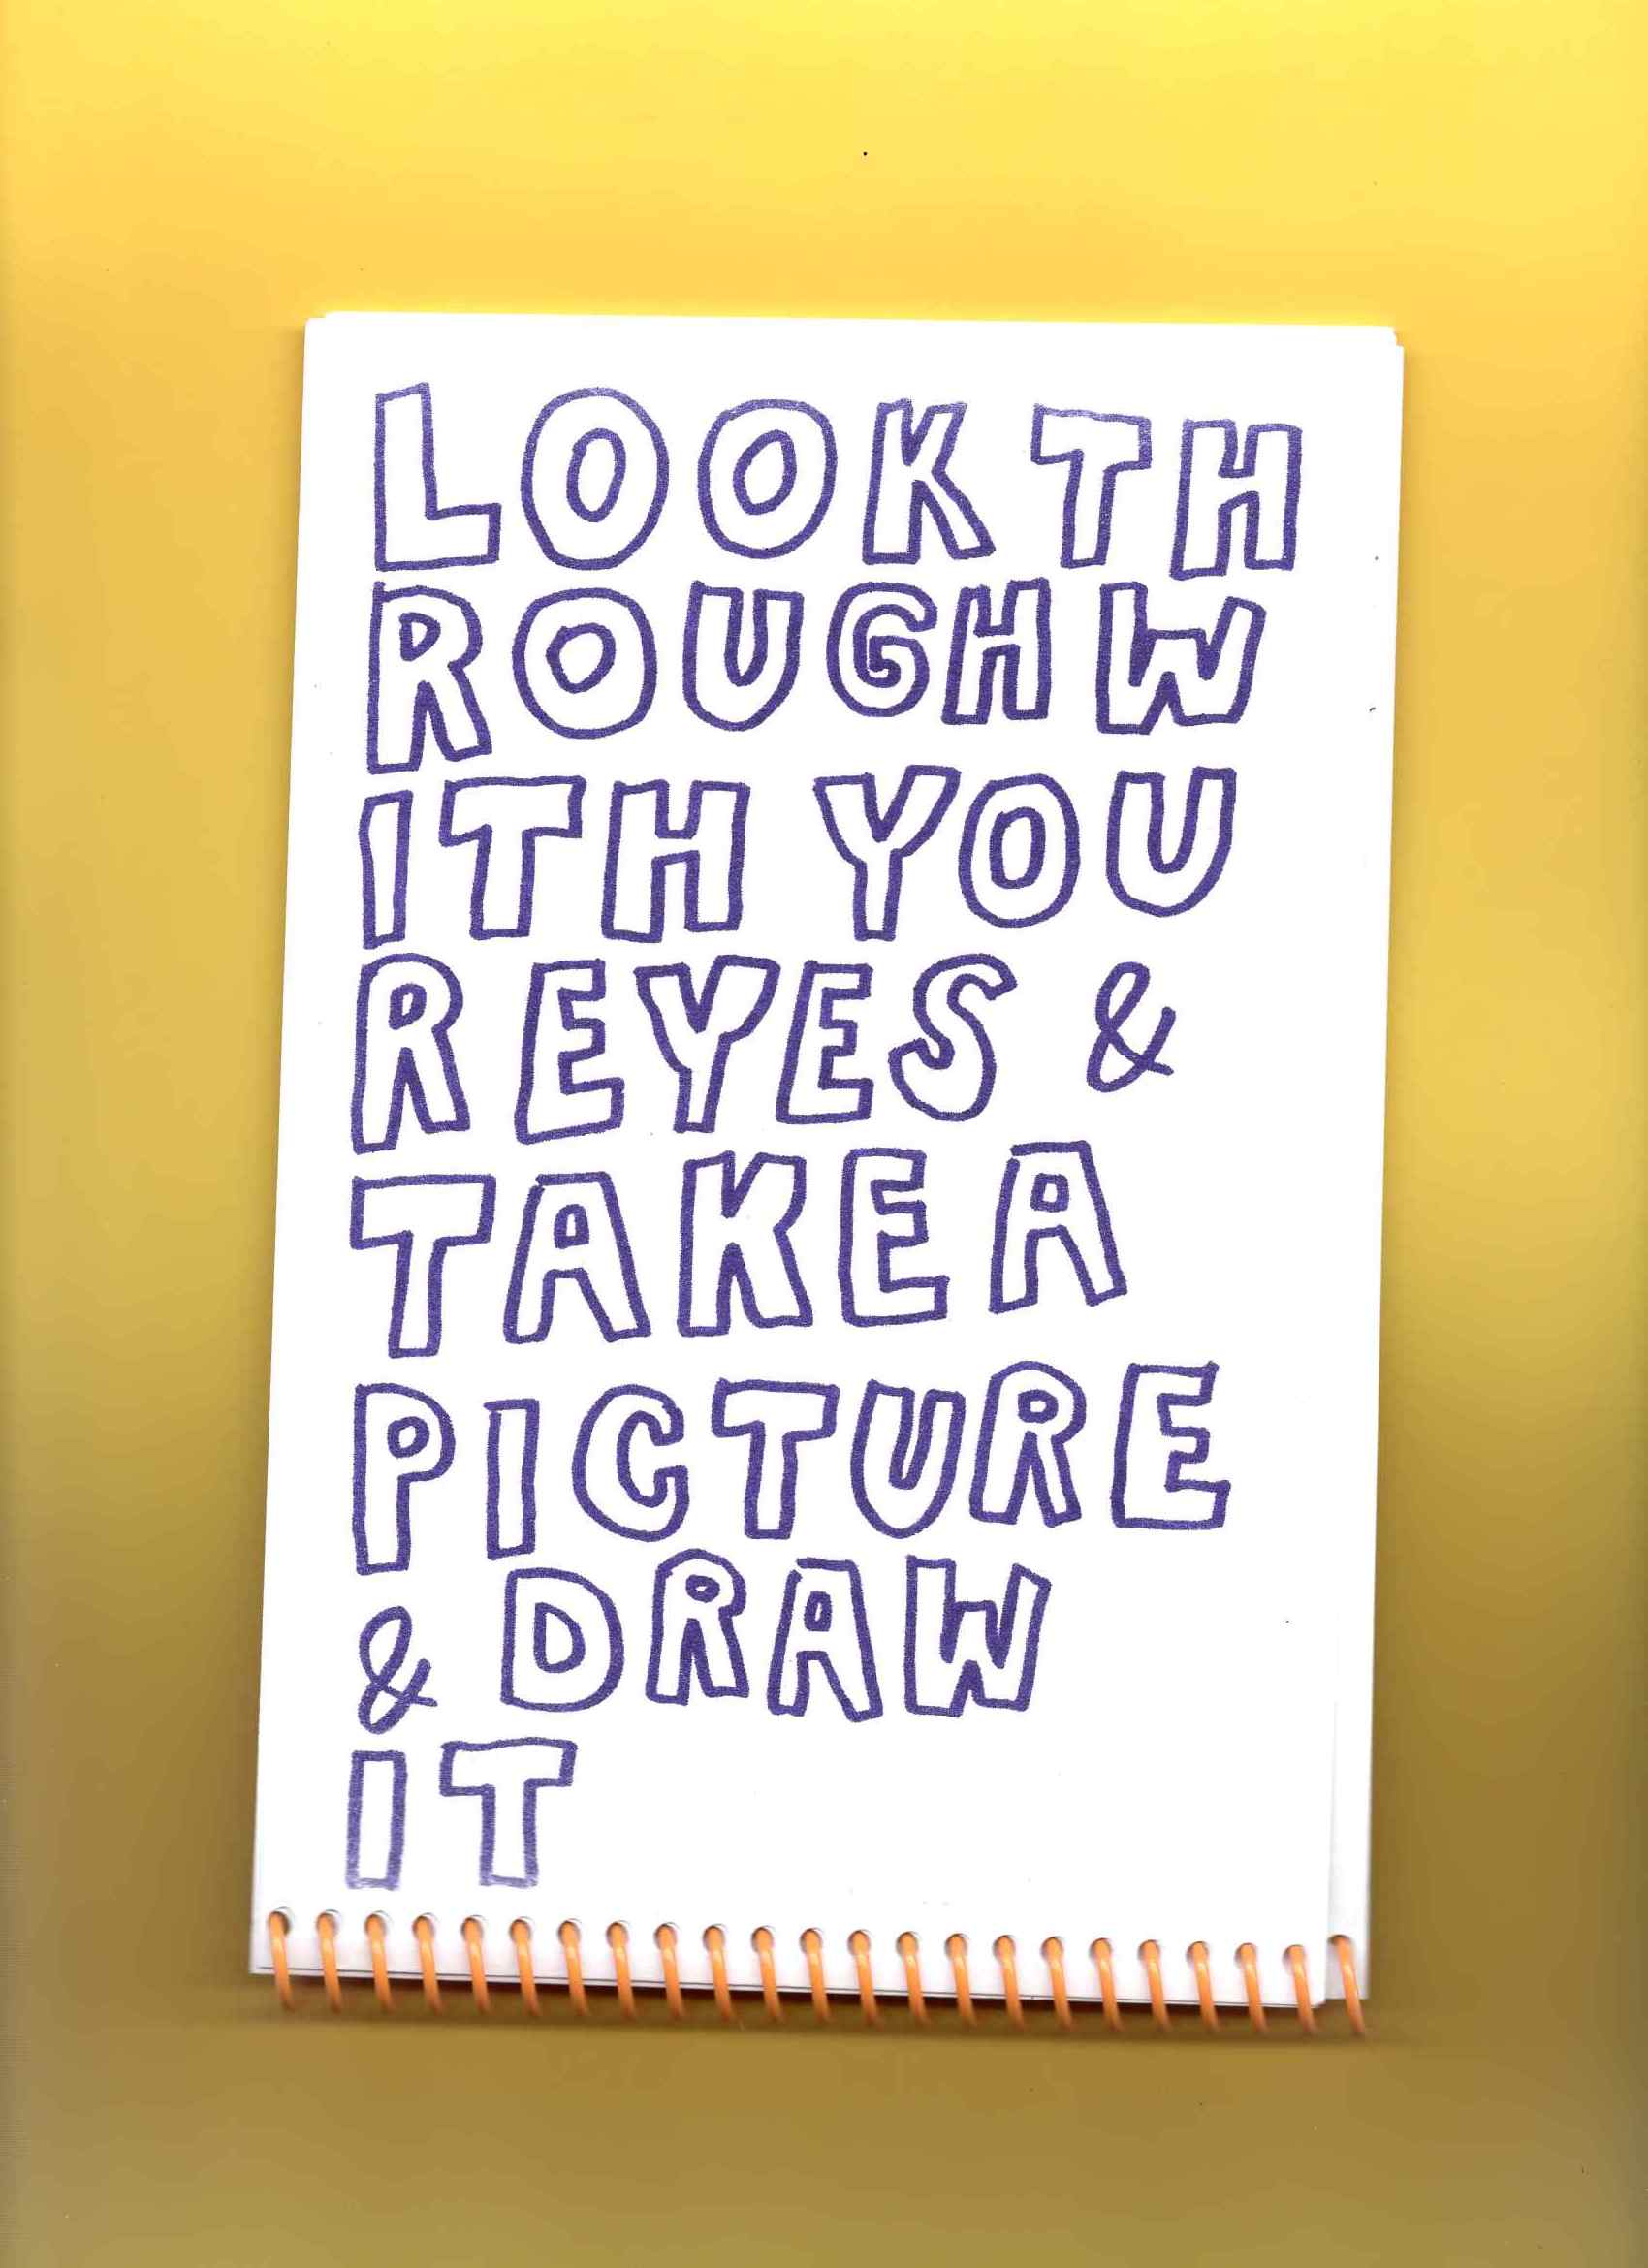 LOOK TH
ROUGH W
ITH YOU
R EYES &
TAKE A
PICTURE
& DRAW
IT